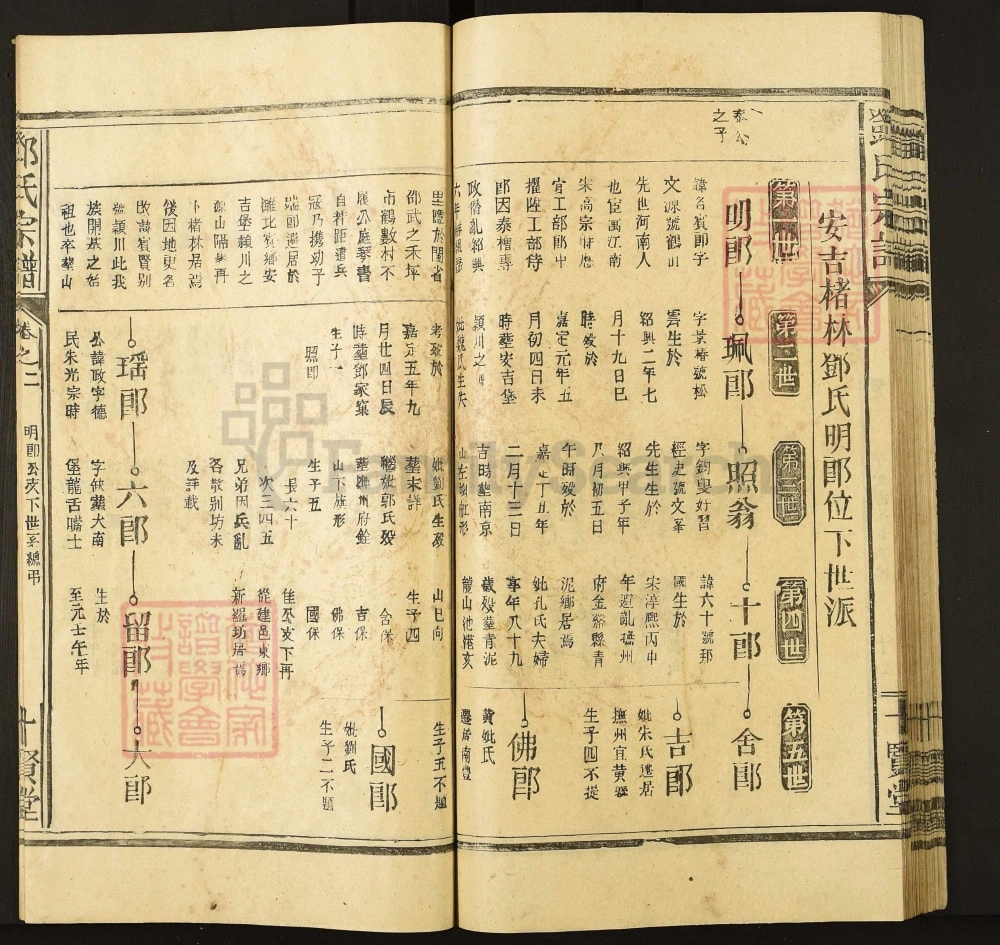 安吉楮林鄧氏明郎位下世派
第一世
第二世
第三世
第四世
第五世
泰公
之子
明郎
諱名賓郎字
文源號鶴山
先世河南人
也宦寓江南
宋高宗時歷
官工部郎中
擢陞工部侍
郎因秦檜專
政僭亂範興
里隱於閩省
邵武之禾坪
市鶴數村不
履公庭琴書
自樂距遭兵
寇乃携幼子
瑞郎避居於
濰北賓鄉安
吉堡穎川之
卜楮林居焉
後因地更名
改諱賓賢別
號潁川此我
族開基之始
祖也卒葬山
珮郎
字景椿號松
雲生於
紹興二年七
月十九日巳
時歿於
嘉定元年五
月初四日未
時葬安吉堡
潁川之
妣魏氏生失
考歿於
嘉定五年九
月廿四日辰
時葬鄧家窠
生子一
照郎
照翁
字鈞叟好習
經史號文峯
先生生於
紹興甲子年
八月初五日
午時歿於
嘉定丁丑年
二月十三日
吉時葬南京
山左蜈蚣形
妣劉氏生歿
葬未詳
繼妣郭氏歿
葬撫州府銓
山下旗形
生子五
長六十
次三四五
兄弟因兵亂
各散別坊未
及詳載
十郎
諱六十號邦
國生於
宋淳熙丙申
年避亂撫州
府金谿縣青
泥鄉居焉
妣孔氏夫婦
享年八十九
歲歿葬青泥
龍山池港亥
山巳向
生子四
舍保
吉保
佛保
國保
佳公支下再
從建邑東鄉
新羅坊居焉
舍郎
妣朱氏遷居
撫州宜黃縣
生子四不從
吉郎
佛郎
黃妣氏
遷居南豐
生子五不廸
國郎
妣劉氏
生子二不題
瑶郎
公諱政字德
民朱光宗時
六郎
字俶葬大南
堡龍舌嘴士
留郎
生於
至元士午年
大郎
鄧氏宗譜
卷之二
明郎公支下世系總弔
十賢堂
鄧氏宗譜
十賢堂